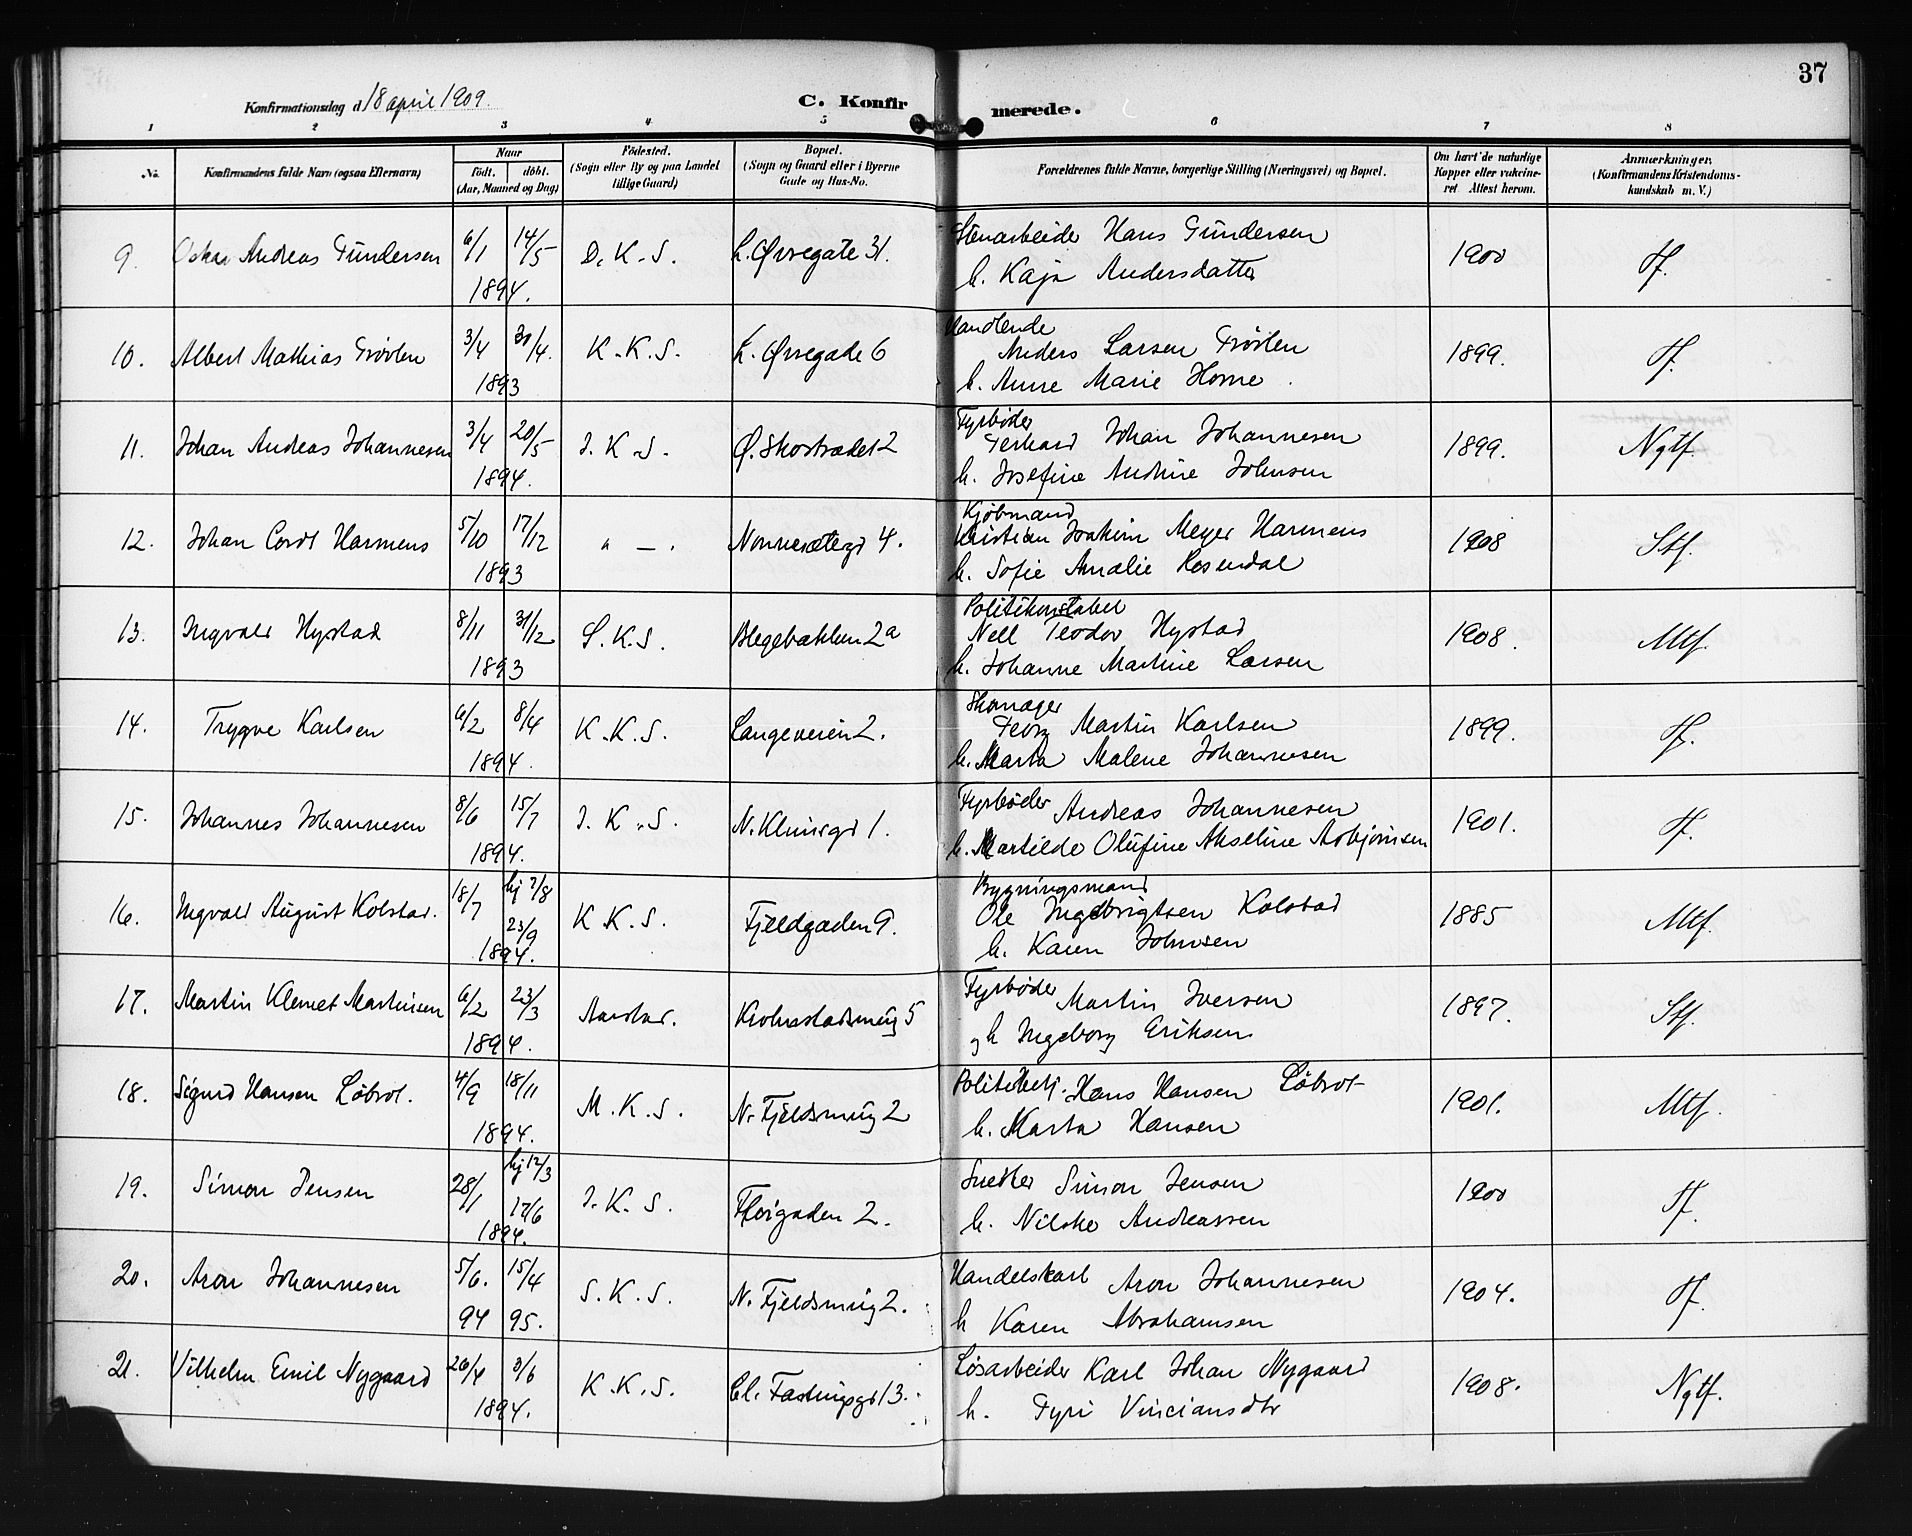 37
Konfirmationsdag d. 18 april 1909.
C. Konfirmerede.
1 2 3 4 5 6 7 8
No. Konfirmandens fulde Navn (ogsaa Efternavn) Naar født. døbt. (Aar, Maaned og Dag) Fødested. (Sogn eller By og paa Landet tillige Gaard) Bopæl. (Sogn og Gaard eller i Byerne Gade og Hus-No. Forældrenes fulde Navne, borgerlige Stilling (Næringsvei) og Bopæl. Om havt de naturlige Kopper eller vakcineret Attest herom. Anmærkninger. (Konfirmandens Kristendomskundskab m. V.)
9. Oskar Andreas Gundersen 6/1 14/5 1894. D. K. S. L. Øvregate 31. Stenarbeider Hans Gundersen 1900 Tf.
h. Kaja Andersdatter
10. Albert Mathias Frøvlen 3/4 30/4. 1893 K. K. S. L. Øvregade 6 Handlende 1899. Tf.
Anders Larsen Frøvlen
h. Anne Marie Horne.
11. Johan Andreas Johannesen 3/4 20/5 1894. J. K. S. Ø. Skostrædet 2 Fyrbøder 1899. Ngtf.
Gerhard Johan Johannesen
h. Josefine Andrine Johnsen
12. Johan Cordt Harmens 5/10 17/12 1893 " — . Nonnesætergd 4. Kjøbmand 1908 Stf.
Kristian Joakim Meyer Harmens
h. Sofie Amalie Rosendal
13. Ingvald Hystad 8/11 31/12 1893 S. K. S. Blegebakken 2a Politikonstabel 1908. Mtf.
Nell Teodor Hystad
h. Johanne Martine Larsen
14. Trygve Karlsen 6/2 8/4 1894. K. K. S. Langeveien 2. Skomager 1899. Tf.
Georg Martin Karlsen
h. Marta Malene Johannesen
15. Johannes Johannesen 8/6 15/7 1894. J. K. S. N. Klinegd 1. Fyrbøder Andreas Johannesen 1901. Tf.
h. Martilde Olufine Akseline Asbjørnsen
16. Ingvald August Kolstad. 18/7 hj 7/8 23/9 1894. K K. S. Fjeldgaden 9. Bygningsmand 1885 Mtf.
Ole Ingebrigtsen Kolstad
h. Karen Johnsen
17. Martin Klemet Martinsen 6/2 23/3 1894. Aarstad. Krohnstadsmug 5 Fyrbøder Martin Iversen 1897. Stf.
og h Ingeborg Eriksen
18. Sigurd Hansen Løbrot. 4/9 18/11 1894. M. K. S. N. Fjeldsmug 2 Politibetj. Hans Hansen Løbrot 1901. Mtf.
h. Marta Hansen
19. Simon Jensen 28/1 hj 12/3 17/6 1894. J. K. S. Fløigaden 2. Snekker Simon Jensen 1900 Tf.
h. Nilske Andreassen
20. Aron Johannesen 5/6. 94 15/4 95. S. K. S. N. Fjeldsmug 2. Handelskarl Aron Johannesen 1904. Tf.
h Karen Abrahamsen
21. Vilhelm Emil Nygaard 26/4 3/6 1894. K. K. S. Cl. Fastingsgd 13. Løsarbeider Karl Johan Nygaard 1908. Ngtf.
h. Gyri Vinciansdtr